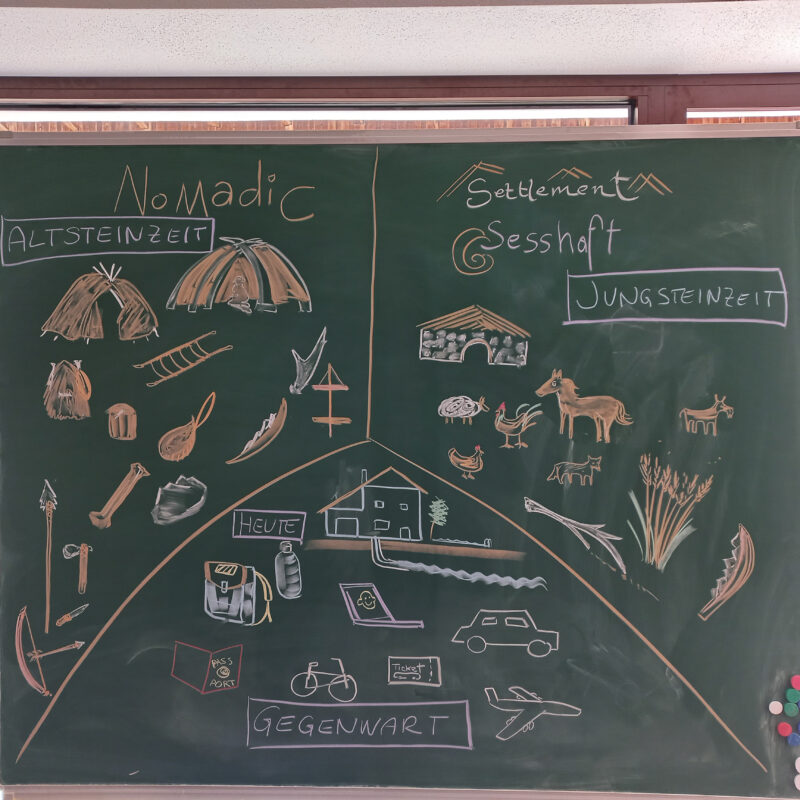 NoMadic
ALTSTEINZEIT
Settlement
Sesshaft
JUNGSTEINZEIT
HEUTE
PASS
PORT
Ticket
GEGENWART